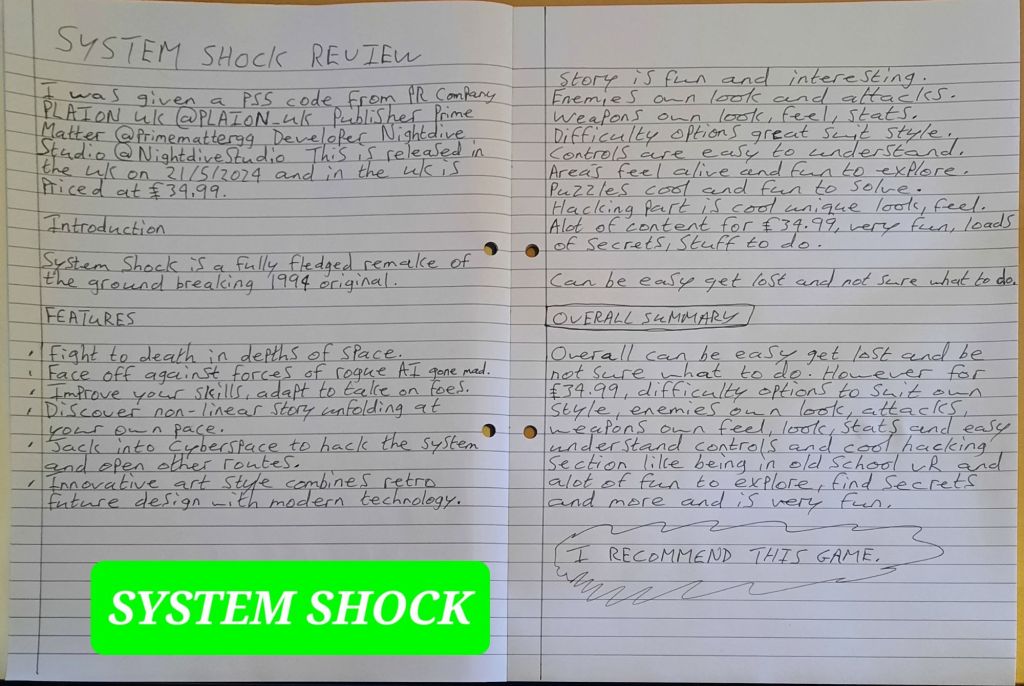 SYSTEM SHOCK REVIEW
I was given a PS5 code from PR Company
PLAION UK @PLAION_UK Publisher Prime
Matter @Primemattergg Developer Nightdive
Studio @NightdiveStudio This is released in
the UK on 21/5/2024 and in the UK is
Priced at £34.99.
Introduction
System Shock is a fully fledged remake of
the ground breaking 1994 original.
FEATURES
• Fight to death in depths of space.
• Face off against forces of rogue AI gone mad.
• Improve your skills, adapt to take on foes.
• Discover non-linear story unfolding at
your own pace.
• Jack into Cyberspace to hack the system
and open other routes.
• Innovative art style combines retro
future design with modern technology.
Story is fun and interesting.
Enemies own look and attacks.
Weapons own look, feel, stats.
Difficulty options great suit style.
Controls are easy to understand.
Areas feel alive and fun to explore.
Puzzles cool and fun to solve.
Hacking part is cool unique look, feel.
Alot of content for £34.99, very fun, loads
of secrets, stuff to do.
Can be easy get lost and not sure what to do.
OVERALL SUMMARY
Overall can be easy get lost and be
not sure what to do. However for
£34.99, difficulty options to suit own
style, enemies own look, attacks,
weapons own feel, look, stats and easy
understand controls and cool hacking
section like being in old school VR and
alot of fun to explore, find secrets
and more and is very fun.
I RECOMMEND THIS GAME.
SYSTEM SHOCK